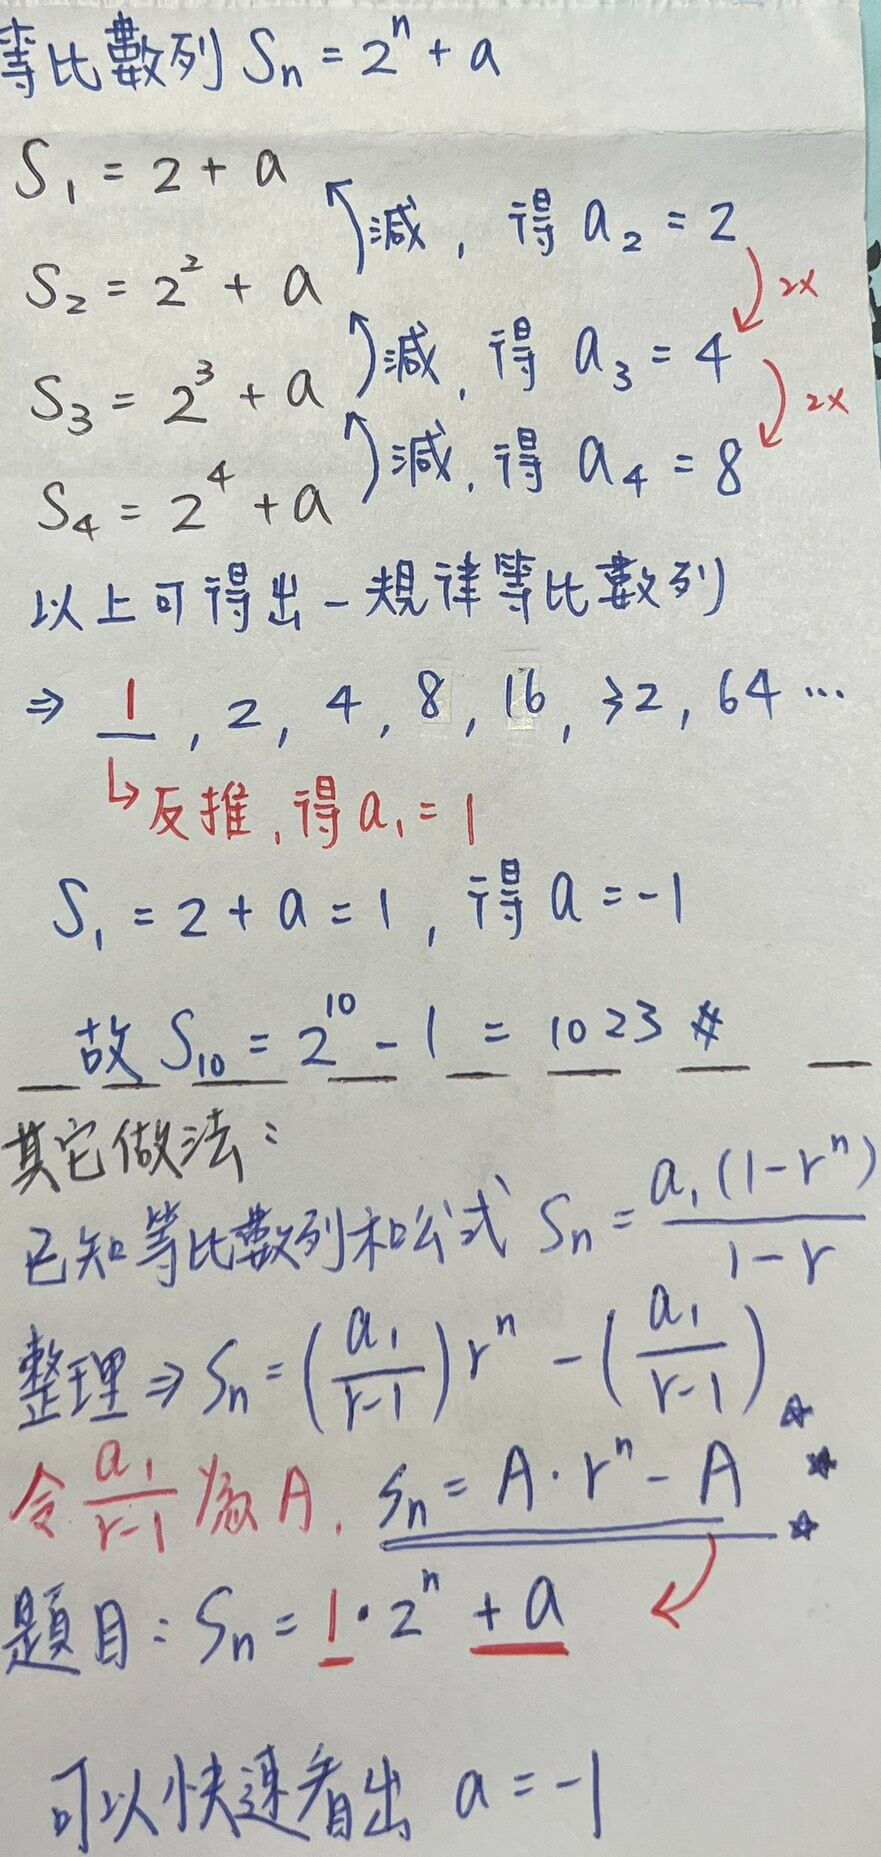 等比數列 Sₙ = 2ⁿ + a
S₁ = 2 + a
減, 得 a₂ = 2
2x
S₂ = 2² + a
減, 得 a₃ = 4
2x
S₃ = 2³ + a
減, 得 a₄ = 8
S₄ = 2⁴ + a
以上可得出一規律等比數列
⇒ 1, 2, 4, 8, 16, 32, 64 ...
↳ 反推, 得 a₁ = 1
S₁ = 2 + a = 1, 得 a = -1
故 S₁₀ = 2¹⁰ - 1 = 1023 #
其它做法:
已知等比數列和公式 Sₙ = a₁(1-rⁿ) / 1-r
整理 ⇒ Sₙ = (a₁/r-1) rⁿ - (a₁/r-1) ☆
令 a₁/r-1 為 A, Sₙ = A · rⁿ - A ☆ ☆
題目: Sₙ = 1 · 2ⁿ + a
可以快速看出 a = -1